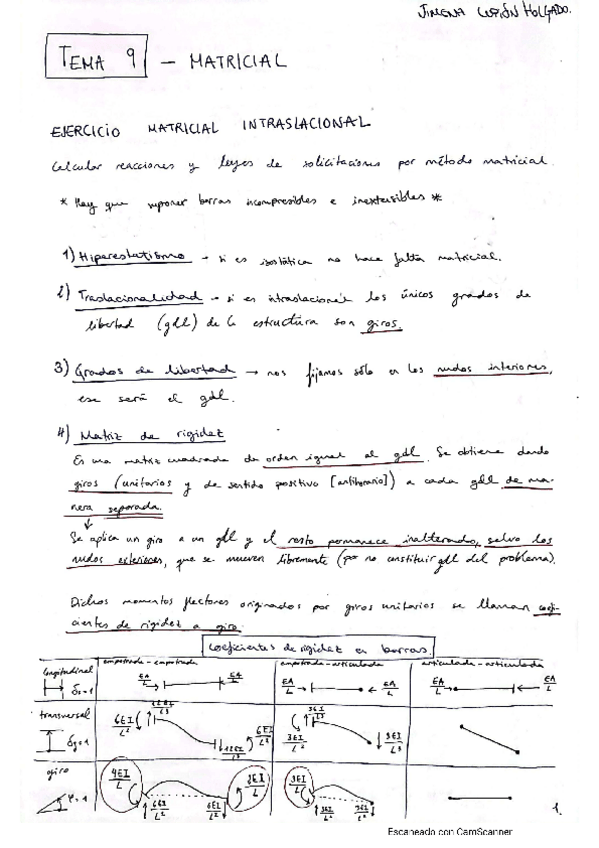 JIMENA LUPIÓN HOLGADO.
TEMA 9 - MATRICIAL
EJERCICIO MATRICIAL INTRASLACIONAL
Calcular reacciones y leyes de solicitaciones por método matricial.
* Hay que suponer barras incompresibles e inextensibles *
1) Hiperestatismo → si es isostática no hace falta matricial.
2) Traslacionalidad → si es intraslacional los únicos grados de
libertad (gdl) de la estructura son giros.
3) Grados de libertad → nos fijamos sólo en los nudos interiores,
ese será el gdl.
4) Matriz de rigidez
Es una matriz cuadrada de orden igual al gdl. Se obtiene dando
giros (unitarios y de sentido positivo [antihorario]) a cada gdl de ma-
nera separada.
Se aplica un giro a un gdl y el resto permanece inalterado, salvo los
nudos exteriores, que se mueven libremente (por no constituir gdl del problema).
Dichos momentos flectores originados por giros unitarios se llaman coefi-
cientes de rigidez a giro.
Coeficientes de rigidez en barras
empotrada-empotrada empotrada-articulada articulada-articulada
longitudinal δx=1 EA/L EA/L EA/L EA/L EA/L EA/L
transversal δy=1 6EI/L² 12EI/L³ 12EI/L³ 6EI/L² 3EI/L² 3EI/L³ 3EI/L³
giro φ=1 4EI/L 6EI/L² 6EI/L² 2EI/L 3EI/L 3EI/L² 3EI/L²
1.
Escaneado con CamScanner